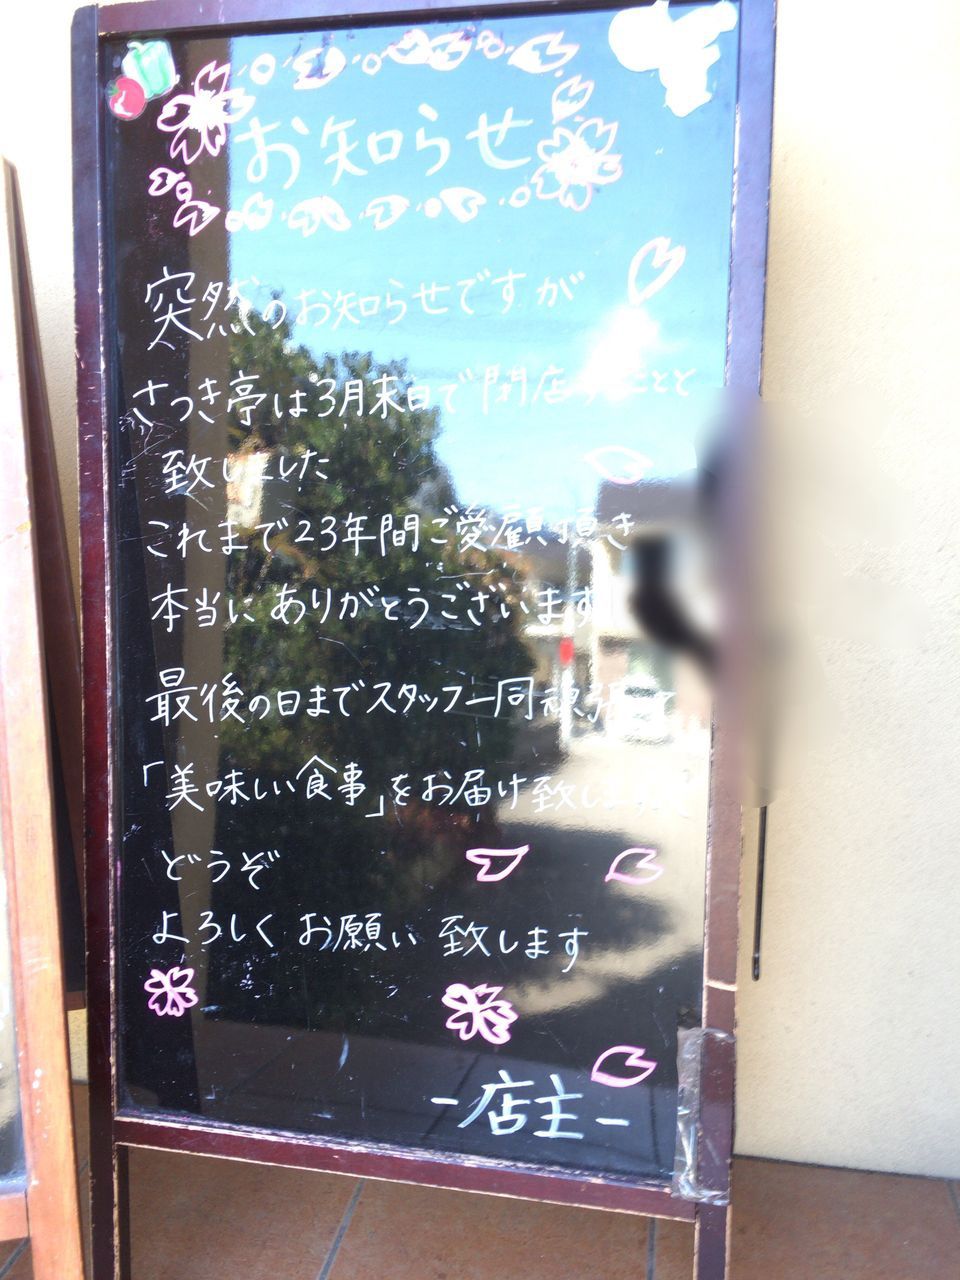 お知らせ
突然のお知らせですが
さつき亭は3月末日で閉店することと
致しました
これまで23年間ご愛顧頂き
本当にありがとうございます
最後の日までスタッフ一同頑張って
「美味しい食事」をお届け致します
どうぞ
よろしくお願い致します
-店主-